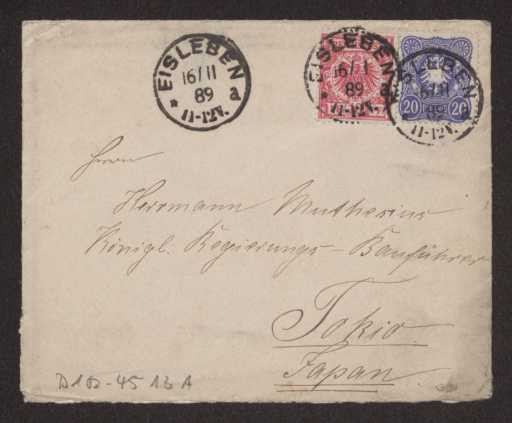 EISLEBEN
16/11
89
* a
11-12V.
EISLEBEN
16/11
89
* a
11-12V.
EISLEBEN
16/11
89
11-12V.
20 20
Herrn
Herrmann Muthesius
Königl. Regierungs-Bauführer
Tokio
Japan
D102-4513A